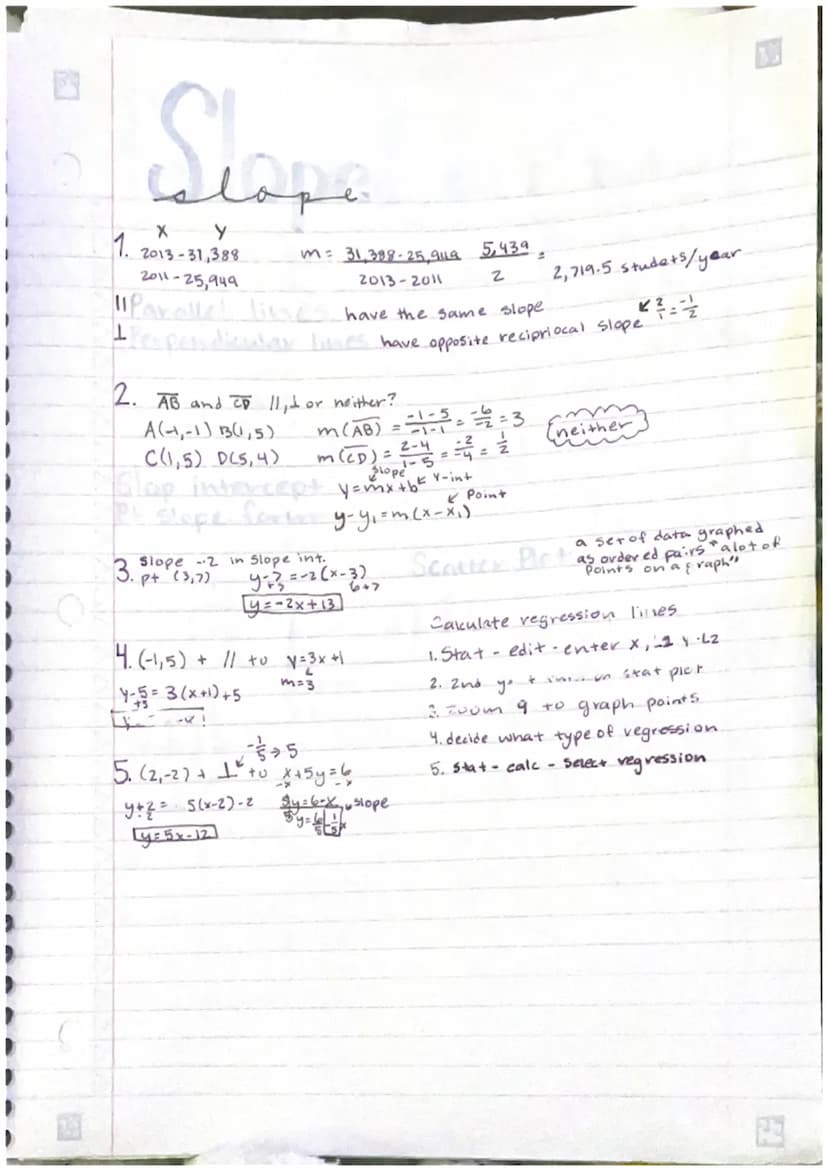 Slope
slope
X Y
1. 2013-31,388 m = 31,388-25,949 / 2013-2011 5,439 / 2 = 2,719.5 studets/year
2011-25,949
|| Parallel lines have the same slope ↙ 2/1 = -1/2
⊥ Perpendicular lines have opposite recipriocal slope
2. AB and CD //, ⊥ or neither?
A(-1,-1) B(1,5) m(AB) = -1-5 / -1-1 = -6/-2 = 3 neither
C(1,5) D(5,4) m(CD) = 2-4 / 1-5 = -2/-4 = 1/2
Slop intercept y=mx+b slope y-int
Pt slope form y-y₁=m(x-x₁) Point
3. Slope -2 in slope int.
pt (3,7) y-7=-2(x-3)
+7 6+7
y=-2x+13
Scatter Plot a set of data graphed
as ordered pairs "alot of
points on a graph"
4. (-1,5) + // to y=3x+1
m=3
y-5=3(x+1)+5
+5
5. (2,-2) + ⊥ to x+5y=6
-1/5 → 5
-x -x
y+2= 5(x-2)-2 5y=6-x slope
-2 5
y=5x-12
Calculate regression lines
1. Stat - edit - enter x, L1 y-L2
2. 2nd stat plot
3. Zoom 9 to graph points
4. decide what type of regression
5. Stat - calc - select regression